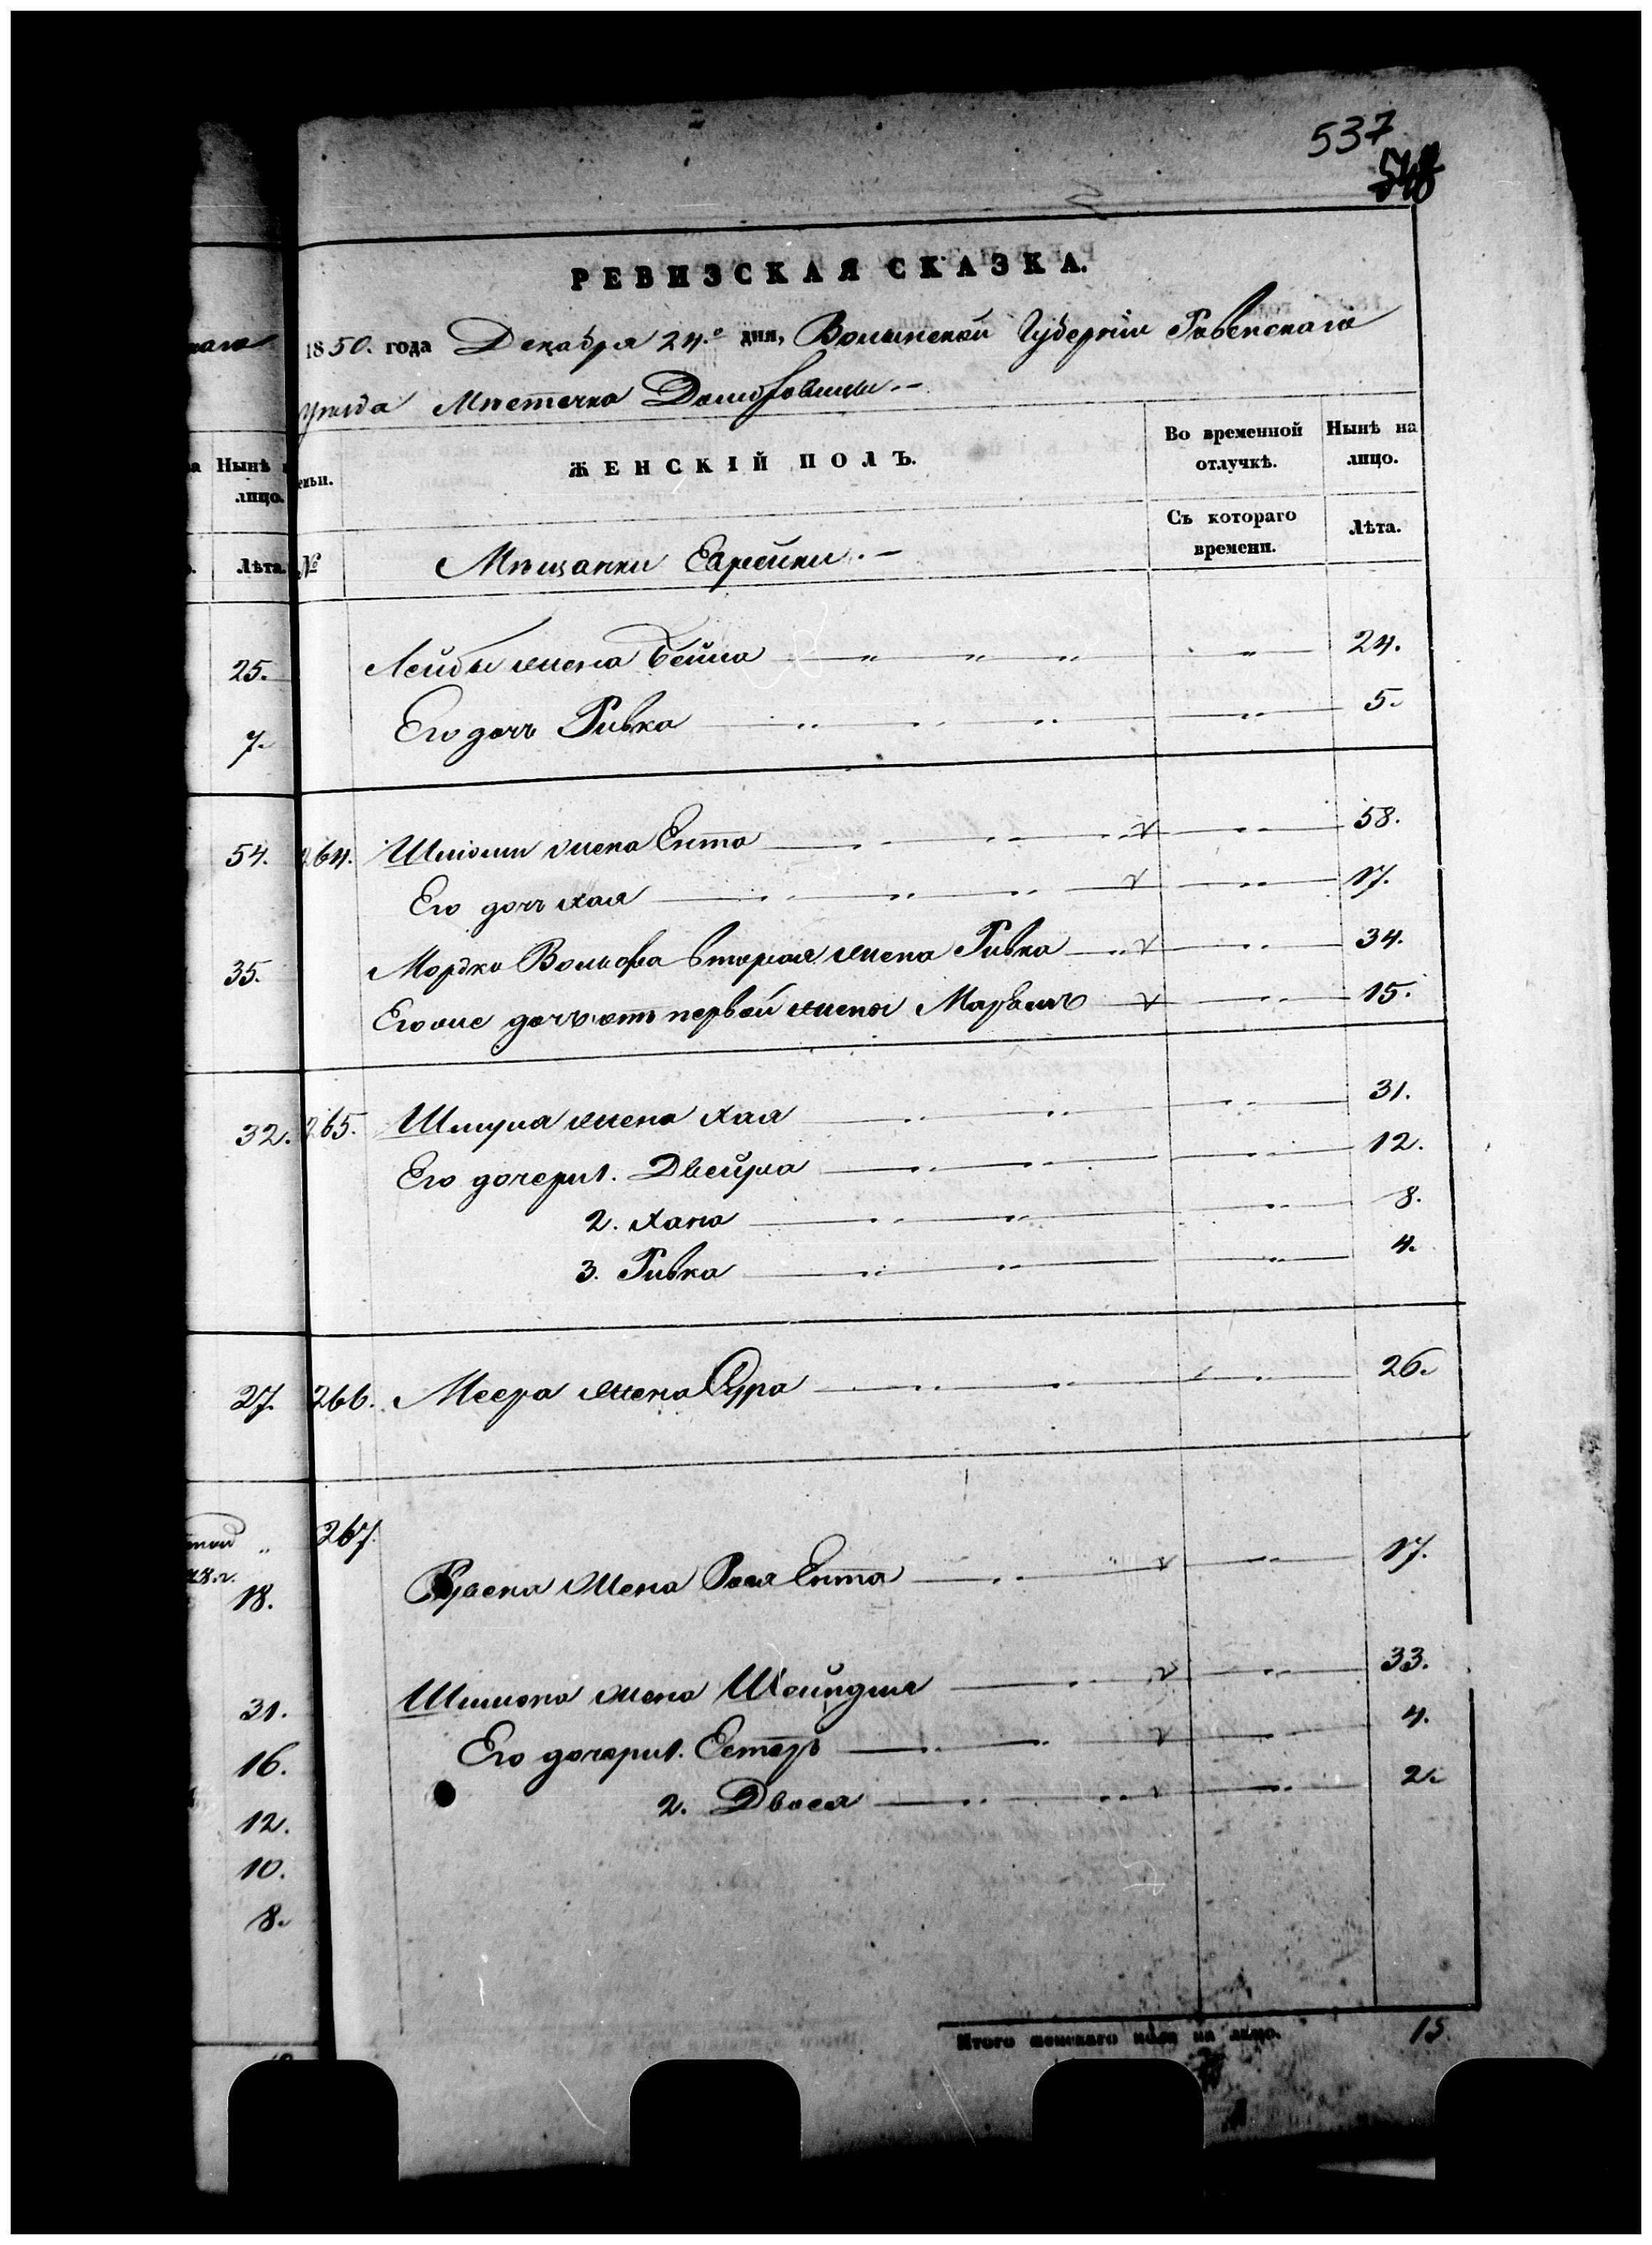 537
548
РЕВИЗСКАЯ СКАЗКА.
1850. года Декабря 24.го дня, Волынской Губерніи Ровенскаго
Уѣзда Мѣстечка Домбровицы
ЖЕНСКІЙ ПОЛЪ.
Во временной отлучкѣ.
Нынѣ на лицо.
Съ котораго времени.
Лѣта.
№ Мѣщанки Еврейки.
Нынѣ
лицо.
Лѣта.
Лейбы жена Бейла 24.
Его дочь Ривка 5.
264. Шліомы жена Ента 58.
Его дочь Хая 17.
Мордко Вольфа вторая жена Ривка 34.
Его же дочь отъ первой жены 15.
265. Шмуля жена Хая 31.
Его дочери 1. Двейра 12.
2. Хана 8.
3. Ривка 4.
266. Меера жена Сура 26.
267.
жена Рося Ента 17.
Шимона жена Шейндля 33.
Его дочери 1. Естеръ 4.
2. Двося 2.
Итого женскаго пола на лицо. 15
25.
7.
54.
35.
32.
27.
18.
31.
16.
12.
10.
8.